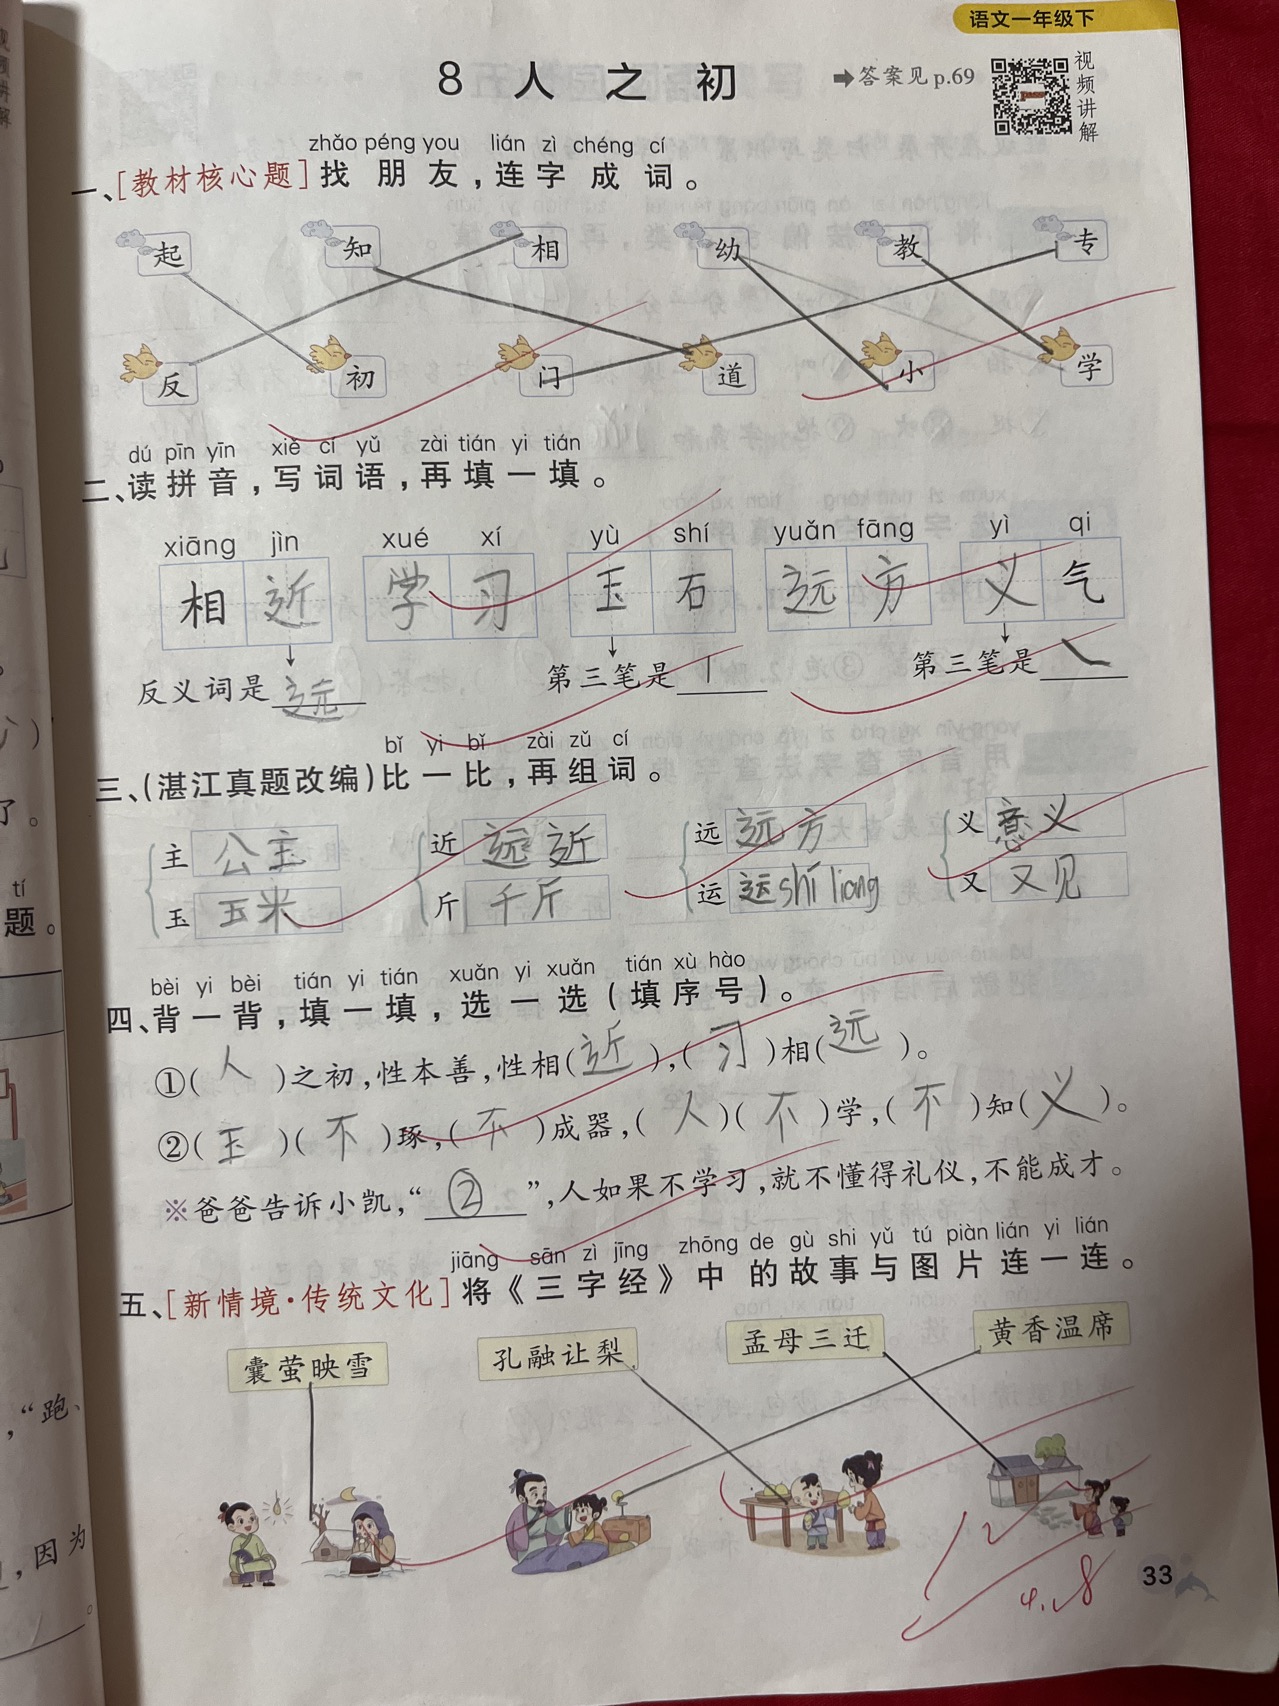 语文一年级下
8 人之初
➡答案见 p.69
视频讲解
zhǎo péng you lián zì chéng cí
一、[教材核心题]找朋友,连字成词。
起 知 相 幼 教 专
反 初 门 道 小 学
dú pīn yīn xiě cí yǔ zài tián yi tián
二、读拼音,写词语,再填一填。
xiāng jìn xué xí yù shí yuǎn fāng yì qi
相近 学习 玉石 远方 义气
反义词是远 第三笔是丨 第三笔是㇏
bǐ yi bǐ zài zǔ cí
三、(湛江真题改编)比一比,再组词。
主 公主 近 远近 远 远方 义 意义
玉 玉米 斤 千斤 运 运shí liang 又 又见
bèi yi bèi tián yi tián xuǎn yi xuǎn tián xù hào
四、背一背,填一填,选一选(填序号)。
①(人)之初,性本善,性相(近),(习)相(远)。
②(玉)(不)琢,(不)成器,(人)(不)学,(不)知(义)。
※爸爸告诉小凯,“②”,人如果不学习,就不懂得礼仪,不能成才。
jiāng sān zì jīng zhōng de gù shi yǔ tú piàn lián yi lián
五、[新情境·传统文化]将《三字经》中的故事与图片连一连。
囊萤映雪 孔融让梨 孟母三迁 黄香温席
4.8
33
了。
tí
题。
,“跑、
,因为